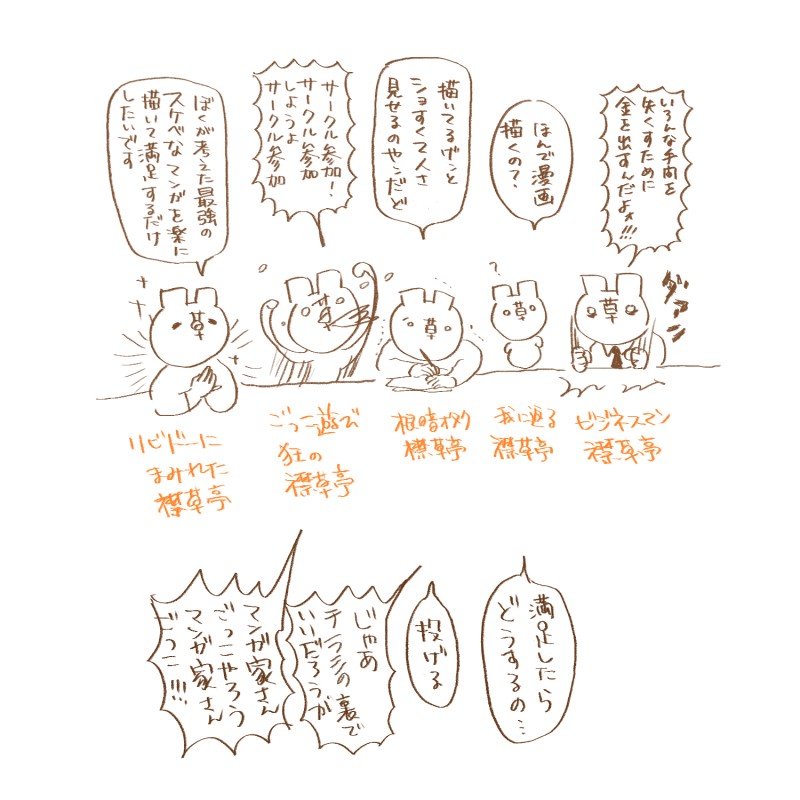 いろんな手間を
失くすために
金を出すんだよォ!!!
ほんで漫画
描くの?
描いてるゲンと
ショすくて人さ
見せるのやンだど
サークル参加!
サークル参加
しようよ
サークル参加
ぼくが考えた最強の
スケベなマンガを楽に
描いて満足するだけ
したいです
ダァン
草
?
草
草
草
草
ビジネスマン
襟草亭
我に返る
襟草亭
根暗オタク
襟草亭
ごっこ遊び
狂の
襟草亭
リビドーに
まみれた
襟草亭
満足したら
どうするの…
投げる
じゃあ
チラシの裏で
いいだろうが
マンガ家さん
ごっこやろう
マンガ家さん
ごっこ!!!